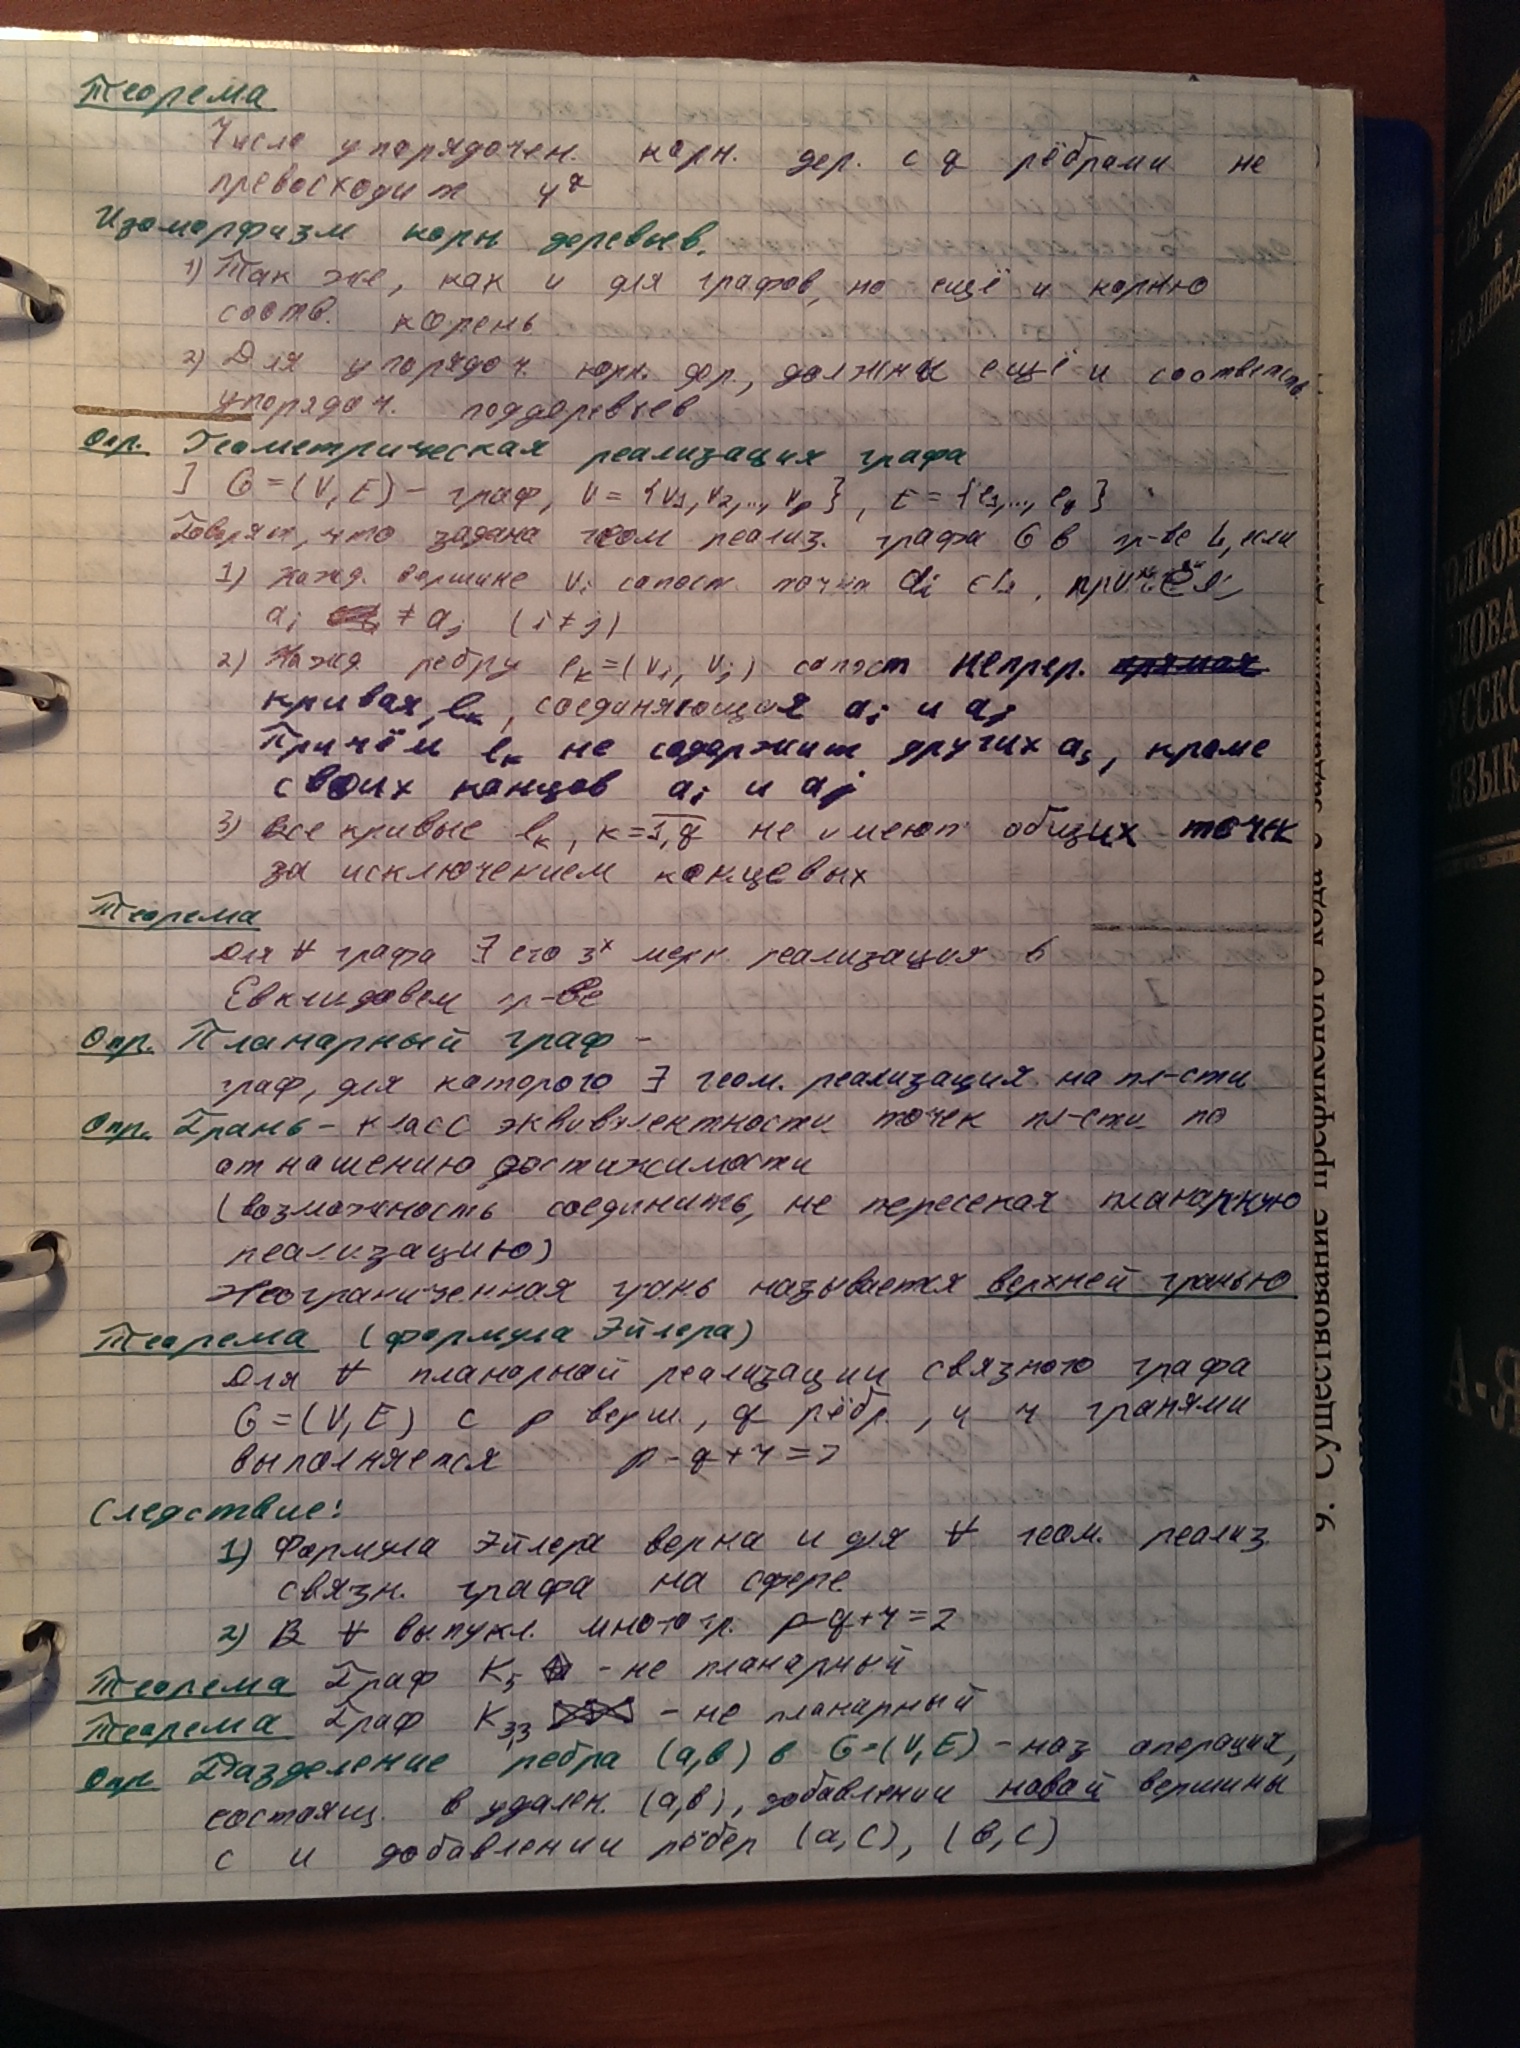 Теорема
Число упорядочен. корн. дер. с q рёбрами не
превосходит 4^q
Изоморфизм корн деревьев.
1) Так же, как и для графов, но ещё и корню
соотв. корень
2) Для упорядоч. корн. дер., должны ещё и соответств.
упорядоч. поддеревьев
Опр. Геометрическая реализация графа
] G = (V, E) - граф, V = {v1, v2, ..., vp}, E = {e1, ..., eq}
Говорят, что задана геом реализ. графа G в пр-ве L, если
1) Кажд. вершине vi сопост. точка ai ∈ L,
ai ≠ aj (i ≠ j)
2) Кажд ребру ek = (vi, vj) сопост непрер. прямая
кривая lk, соединяющая ai и aj
Причём lk не содержит других as, кроме
своих концов ai и aj
3) Все кривые lk, k = 1,q не имеют общих точек
за исключением концевых
Теорема
Для ∀ графа ∃ его 3х мерн. реализация в
Евклидовом пр-ве
Опр. Планарный граф -
граф, для которого ∃ геом. реализация на пл-сти
Опр. Грань - класс эквивалентности точек пл-сти по
отношению достижимости
(возможность соединить, не пересекая планарную
реализацию)
Неограниченная грань называется верхней гранью
Теорема (формула Эйлера)
Для ∀ планарной реализации связного графа
G = (V, E) с p верш., q рёбр., и r гранями
выполняется p - q + r = 2
Следствие:
1) Формула Эйлера верна и для ∀ геом. реализ.
связн. графа на сфере
2) В ∀ выпукл. многогр. p - q + r = 2
Теорема Граф K5 - не планарный
Теорема Граф K3,3 - не планарный
Опр. Разделение ребра (a,b) в G = (V, E) - наз операция,
состоящ. в удален. (a,b), добавлении новой вершины
c и добавлении рёбер (a,c), (b,c)
9. Существование префиксного кода с заданными
И
ТОЛКОВ
СЛОВА
РУССКО
ЯЗЫК
А-Я